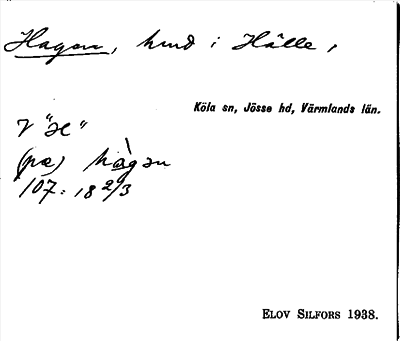 Hagen, hmd i Hälle,
Köla sn, Jösse hd, Värmlands län.
V "æ"
(på) hàgən
107: 18 2/3
ELOV SILFORS 1938.